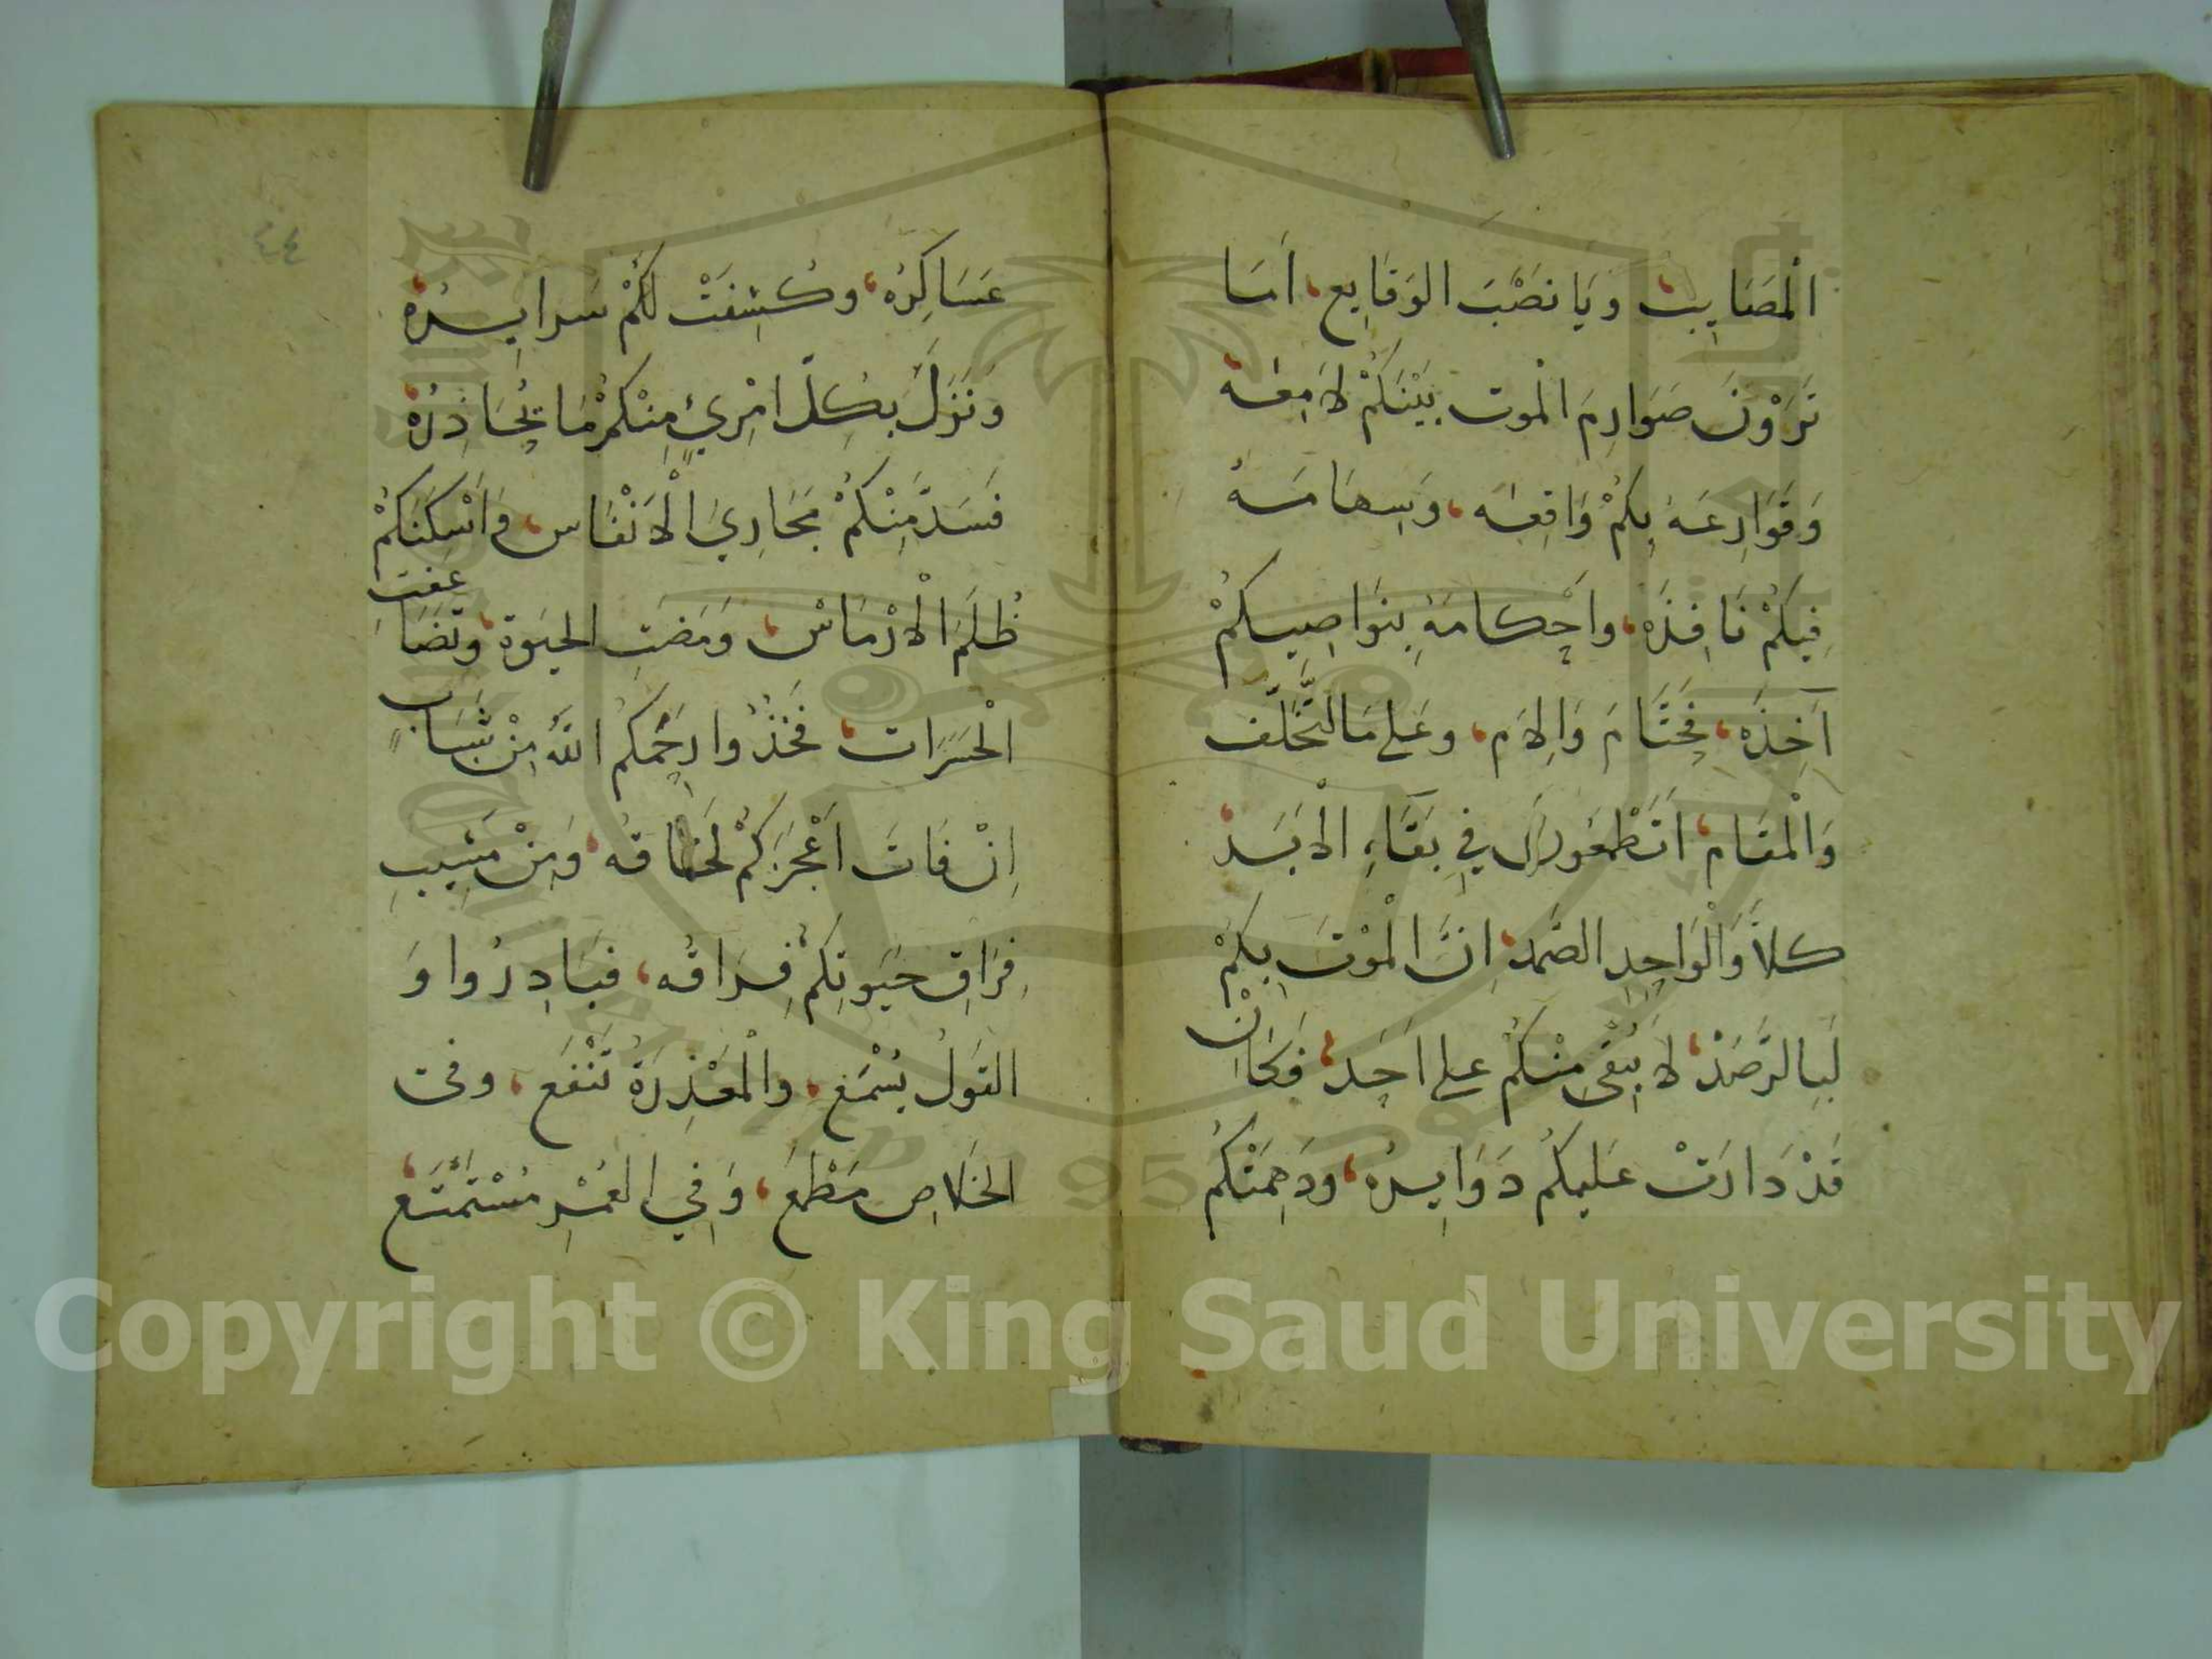 الْمَصَايِبِ، وَيَا نَصْبَ الوَقَايِع، اَمَا
تَرَوْنَ صَوَارِمَ الْموت بَيْنَكُمْ لَامِعَه،
وَقَوَارِعَهُ بِكُمْ وَاقِعَه، وَسِهَامَهُ
فِيكُمْ نَافِذَه، وَاَحْكامَهُ بِنَوَاصِيكُمْ
آخِذَه، فَحَتَّامَ وَاِلَام، وَعَلى مَا التَّخَلُّف
وَالْمقَام، اَتَطْمَعُونَ فِي بَقَاءِ الْاَبَد،
كلَّا وَالْوَاحِدِ الصَّمَد، اِنَّ الْمَوْتَ بِكُمْ
لَبِالرَّصَدْ، لَا يُبْقى مِنْكُمْ على اَحَد، فَكَاَنْ
قَدْ دَارَتْ عَلَيكُم دَوَايِرُه، وَدَهِمَتْكُم
عَسَاكِرُه، وَكُشِفَتْ لَكُمْ سَرايِرُه،
وَنَزَلَ بِكُلّ امْرِيٍ مِنْكُمْ مَا يُحَاذِرُه،
فَسَدَّ مِنْكُمْ مَجَارِيَ الْاَنْفَاس، وَاَسْكَنَكُمْ
ظُلَمَ الْاَرْمَاسْ، وَمَضَتِ الحيَوة، وَتَضَاعفت
الْحَسَرَات، فَخُذُوا رَحِمَكمُ اللَّهُ مِنْ شَبَابٍ
اِنْ فَاتَ اَعْجَزَكُمْ لَحَاقه، وَمِنْ مَشِيبِ
فِرَاقِ حَيَوتِكُمْ فِرَاقُه، فبَادِرُوا وَ
القَولُ يُسْمَع، والْمَعْذِرَةُ تَنْفَع، وفى
الخَلَاصِ مَطْمَع، وَفِي العُمْرِ مُسْتَمْتَع،
٤٤
Copyright © King Saud University